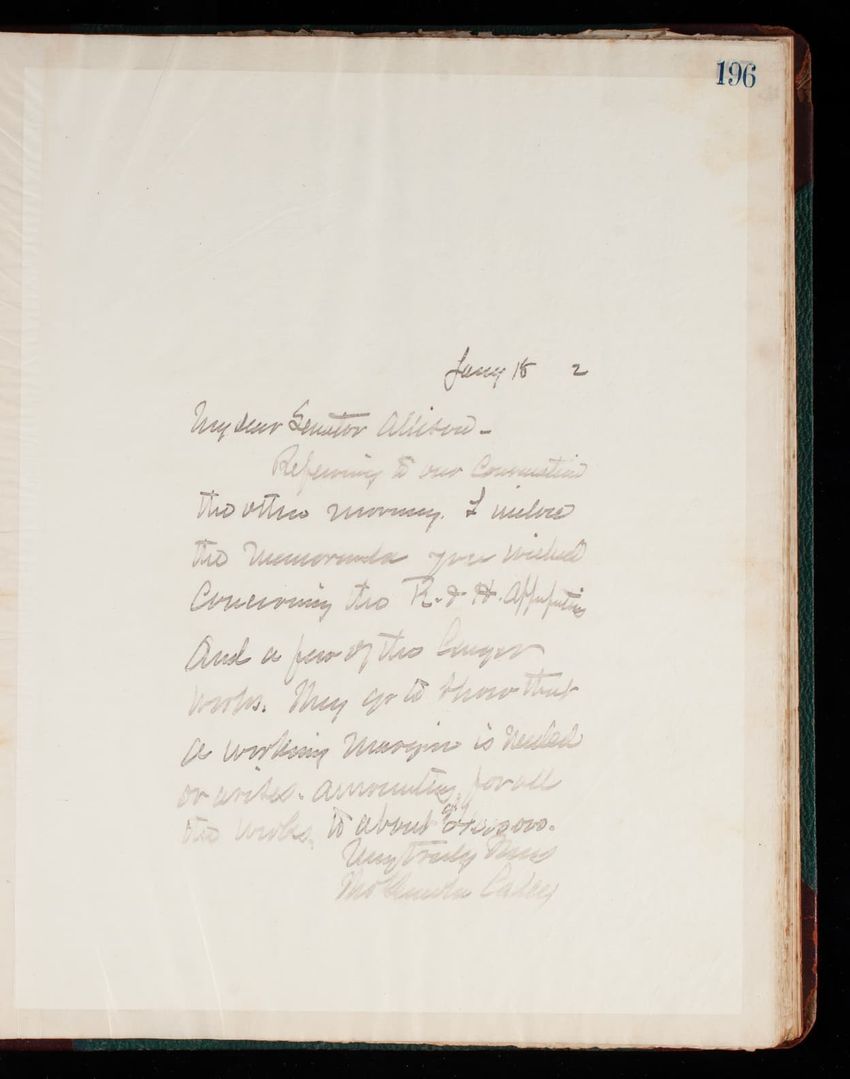 196
Jany 18 2
My dear Senator Allison -
Referring to our Conversation
the other morning. I inclose
the Memoranda you wished
Concerning the R. & H. Appropriation
And a few of the larger
works. They go to show that
a working margin is needed
or arises. amounting for all
the works, to about
Very truly Yours
Thos Lincoln Casey